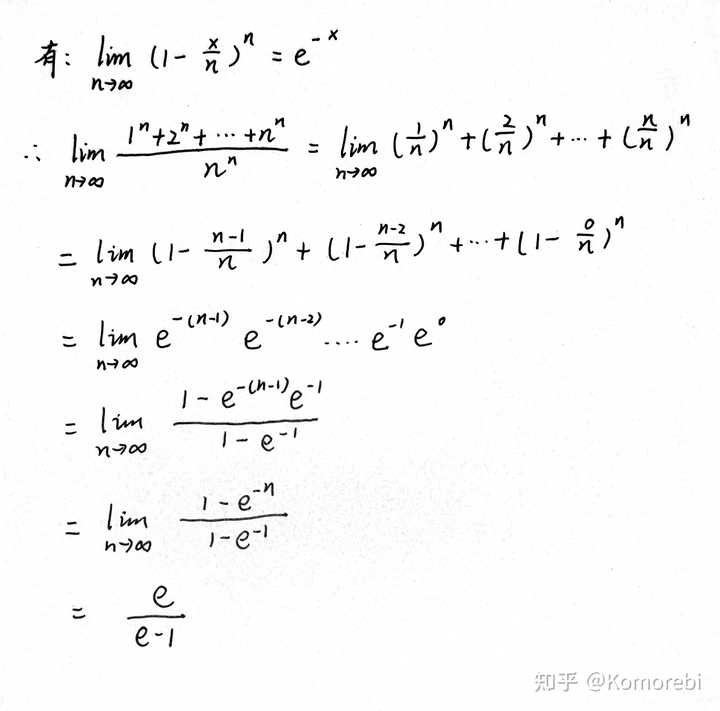 有: lim_{n→∞} (1 - x/n)^n = e^{-x}
∴ lim_{n→∞} (1^n + 2^n + ··· + n^n)/n^n = lim_{n→∞} (1/n)^n + (2/n)^n + ··· + (n/n)^n
= lim_{n→∞} (1 - (n-1)/n)^n + (1 - (n-2)/n)^n + ··· + (1 - 0/n)^n
= lim_{n→∞} e^{-(n-1)} e^{-(n-2)} ···· e^{-1} e^0
= lim_{n→∞} (1 - e^{-(n-1)} e^{-1})/(1 - e^{-1})
= lim_{n→∞} (1 - e^{-n})/(1 - e^{-1})
= e/(e-1)
知乎 @Komorebi